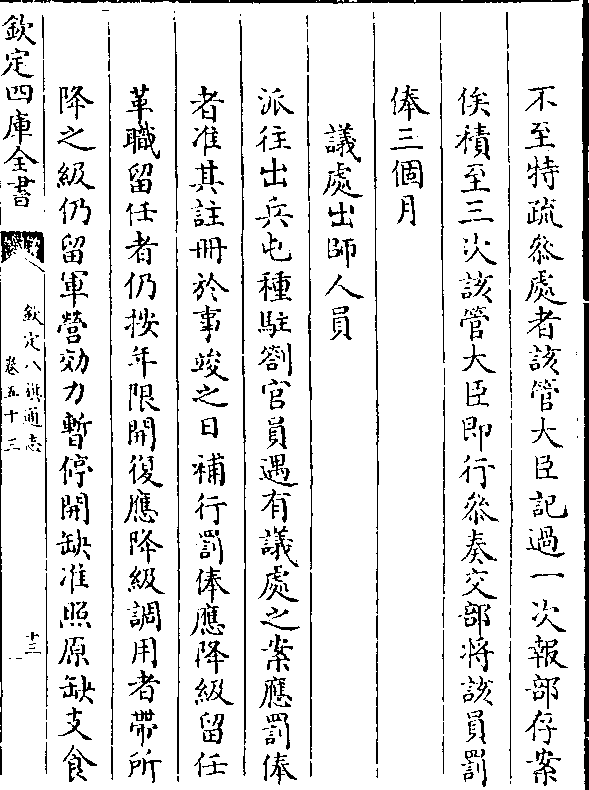 不至特疏叅處者該管大臣記過一次報部存案
俟積至三次該管大臣即行叅奏交部将該員罰
俸三個月
議處出師人員
派往出兵屯種駐劄官員遇有議處之案應罰俸
者准其註冊於事竣之日補行罰俸應降級留任
革職留任者仍按年限開復應降級調用者帶所
降之級仍留軍營効力暫停開缺准照原缺支食
欽定四庫全書
欽定八旗通志
卷五十三
十三